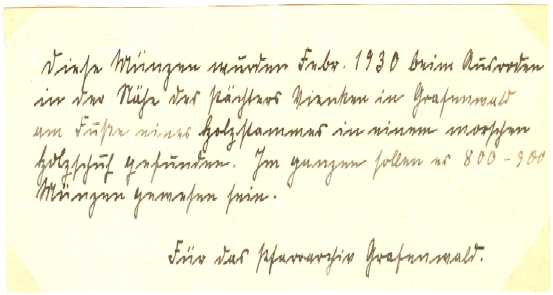 Diese Münzen wurden Febr. 1930 beim Ausroden
in der Nähe des Pächters Vienken in Grafenwald
am Fuße eines Holzstammes in einem morschen
Holzschuh gefunden. Im ganzen sollen es 800-900
Münzen gewesen sein.
Für das Pfarrarchiv Grafenwald.